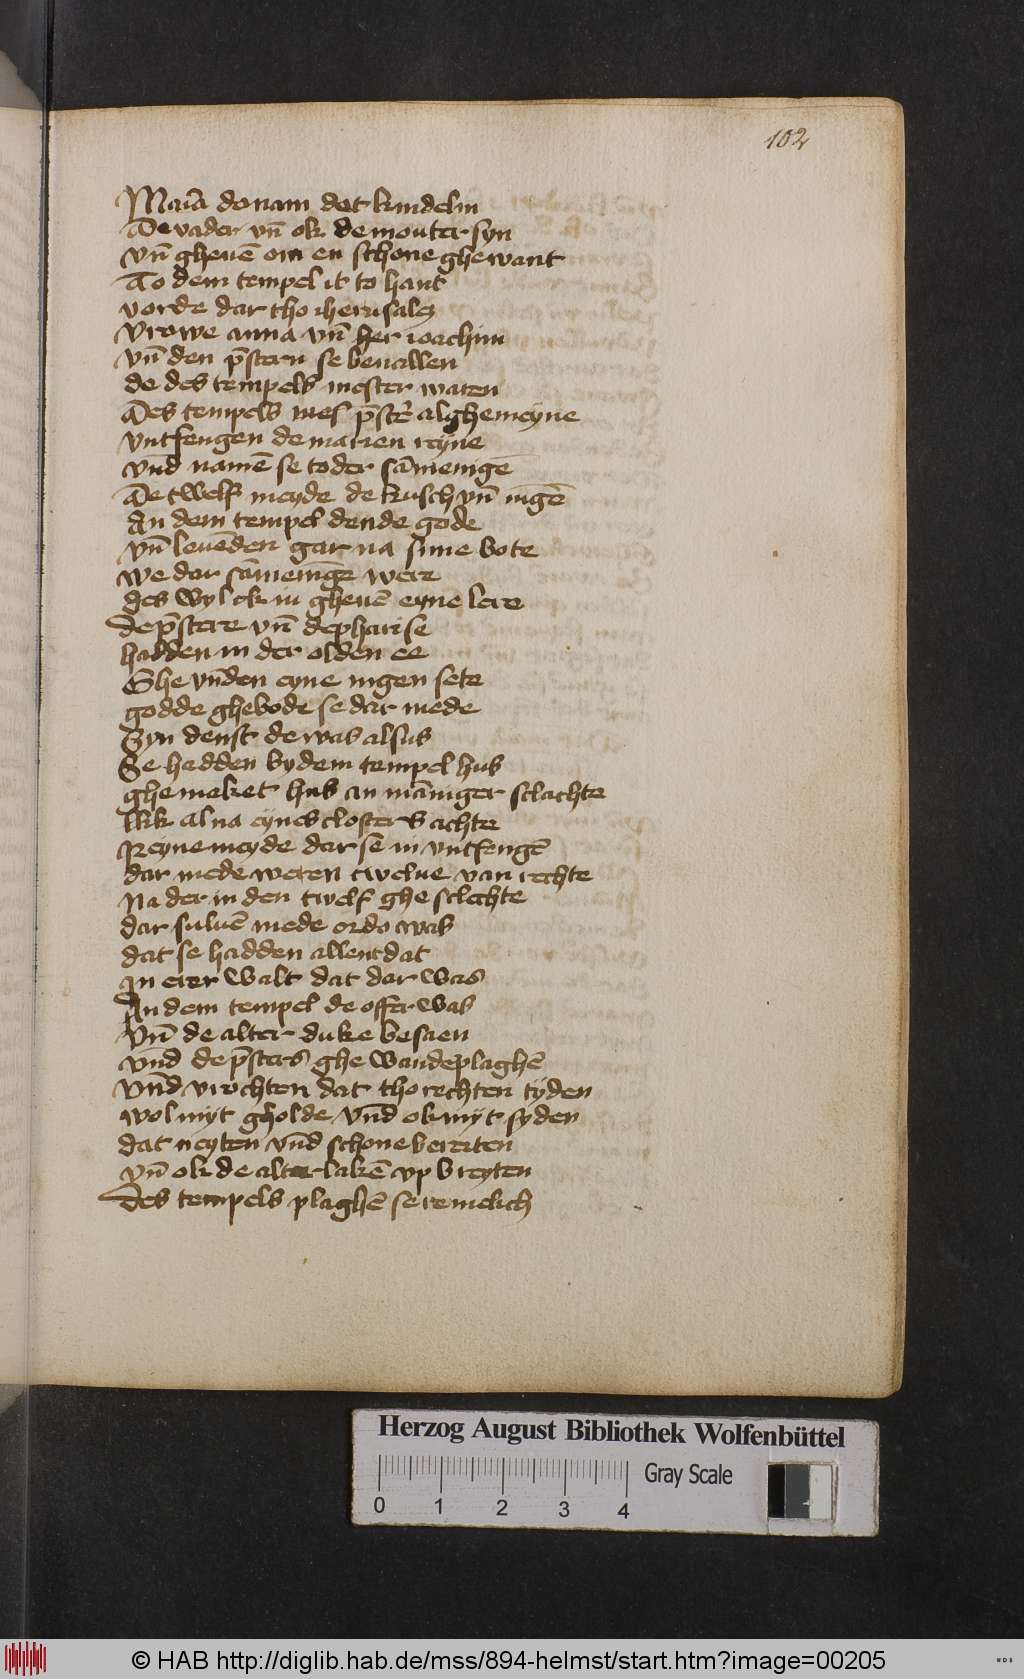 102
Maria do nam dat kindelin
De vader vn̄ ok de mouter syn
vn̄ gheuē om en schone ghewant
To dem tempel it to hant
vorde dar tho iherusalem
vrowe anna vn̄ her ioachim
vn̄ den p̄stern se beuallen
de des tempels mester waren
Des tempels mes p̄ster alghemeyne
vntfengen de marien reyne
vnd namē se to der sāmeninge
De twelf meyde de kusch vn̄ iūgē
An dem tempel dende gode
vn̄ leuēden gar na sime bote
we dar sāmeninge were
des wyl ek iu gheuē eyne lere
de p̄stere vn̄ de pharise
hadden in der olden ee
Ghe vn̄den eyne nigen sete
godde ghebode se dar mede
Syn denst de was alsus
Se hadden by dem tempel hus
ghemaket hus an māniger slachte
lik al na eynes closters achte
Reyne meyde dar se in vntfengē
dar mede weren twelue van rechte
Na der in den twelf gheslechte
dar suluē mede ordo was
dat se hadden allent dat
In erer walt dat dar was
An dem tempel de offer was
Vn̄ de alter duke besaen
vnd de p̄sters ghewande plaghē
Vnd vrochten dat tho rechten tyden
wol myt gholde vnd ok myt syden
dat neyten vnd schone bereiten
vn̄ ok de alter lakē vp breyten
des tempels plaghē se reinelich
Herzog August Bibliothek Wolfenbüttel
Gray Scale
0 1 2 3 4
© HAB http://diglib.hab.de/mss/894-helmst/start.htm?image=00205